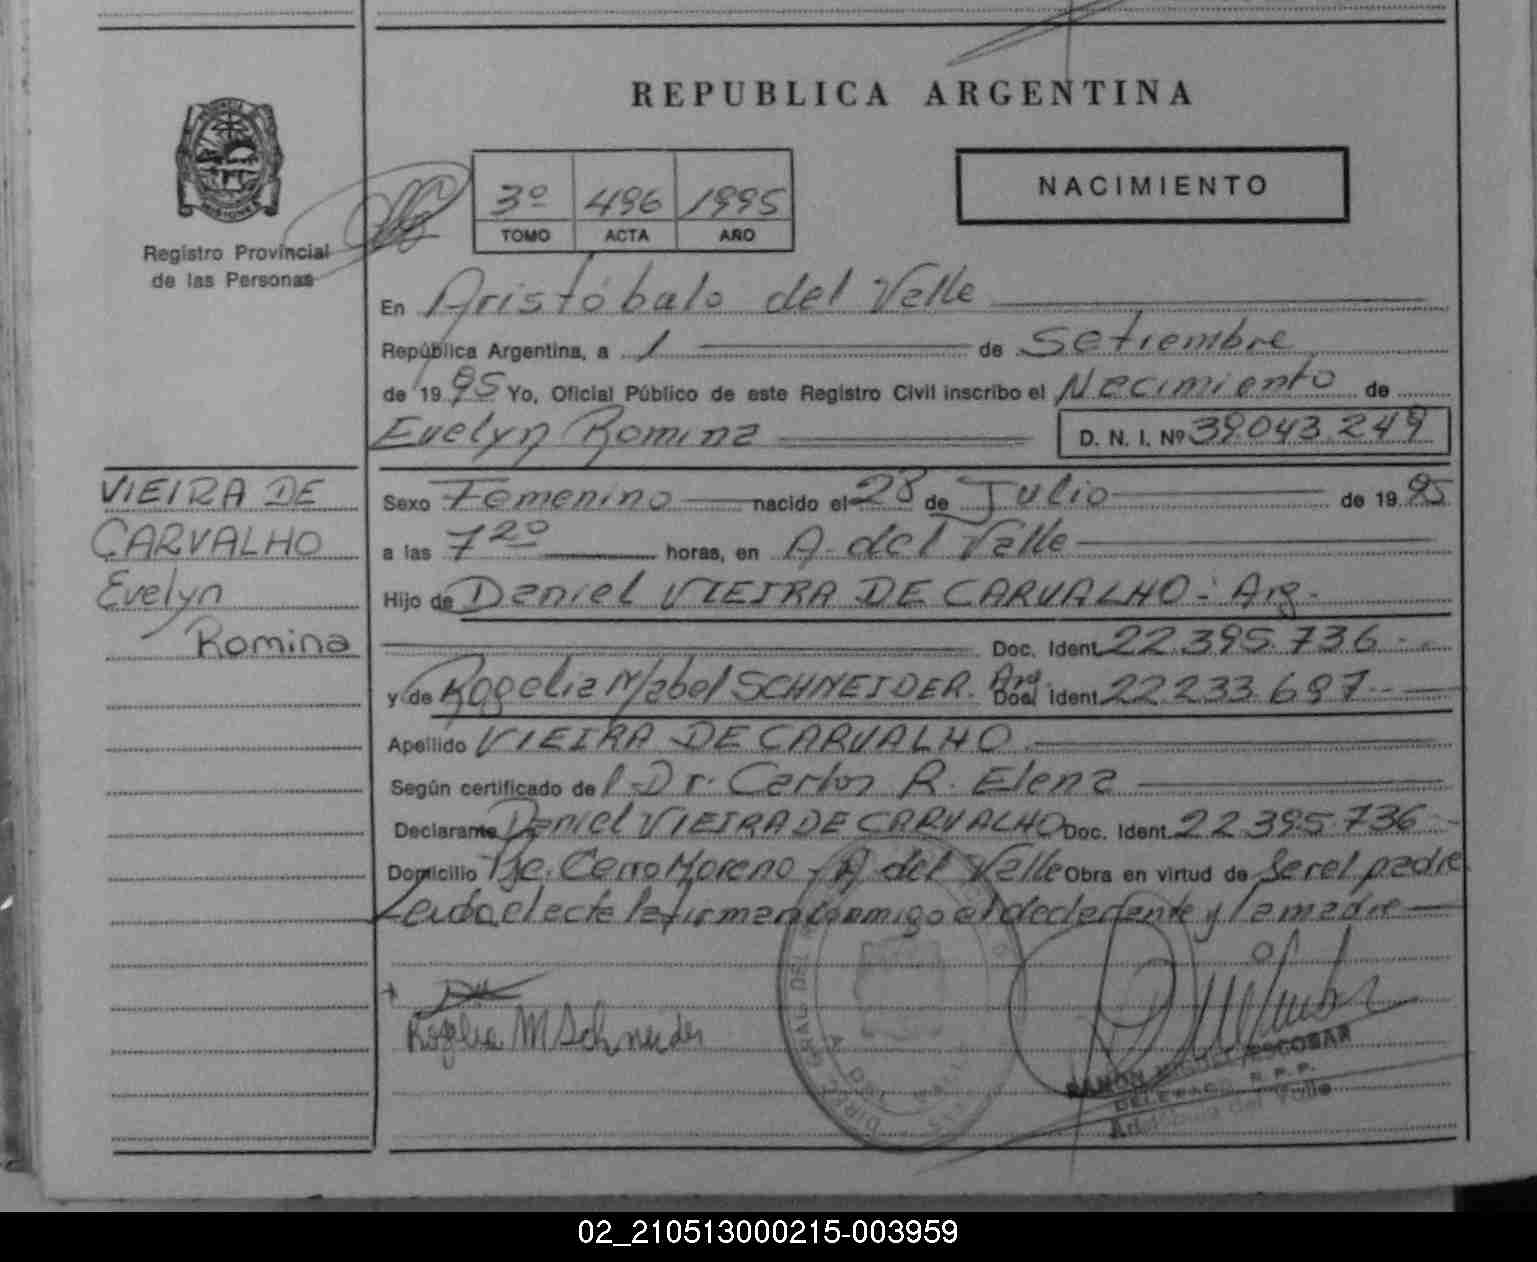 REPUBLICA ARGENTINA
PROVINCIA
MISIONES
Registro Provincial
de las Personas
3º 496 1995
TOMO ACTA AÑO
NACIMIENTO
En Aristóbulo del Valle
República Argentina, a 1 de Setiembre
de 1995 Yo, Oficial Público de este Registro Civil inscribo el Nacimiento de
Evelyn Romina D. N. I. Nº 39.043.249
VIEIRA DE
CARVALHO
Evelyn
Romina
Sexo Femenino nacido el 28 de Julio de 1995
a las 7 20 horas, en A. del Valle
Hijo de Daniel VIEIRA DE CARVALHO - Arg.
Doc. Ident. 22.395.736
y de Rogelia Mabel SCHNEIDER. Arg. Doc. Ident. 22.233.697
Apellido VIEIRA DE CARVALHO
Según certificado del Dr. Carlos R. Elena
Declarante Daniel VIEIRA DE CARVALHO Doc. Ident. 22.395.736
Domicilio Pje. Cerro Moreno - A del Valle Obra en virtud de Ser el padre
Leida el acta la firman conmigo el declarante y la madre
Rogelia M Schneider
RAMON MIGUEL ESCOBAR
DELEGADO R. P. P.
Aristóbulo del Valle
02_210513000215-003959